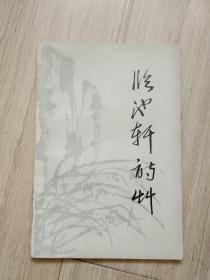 临池轩诗草